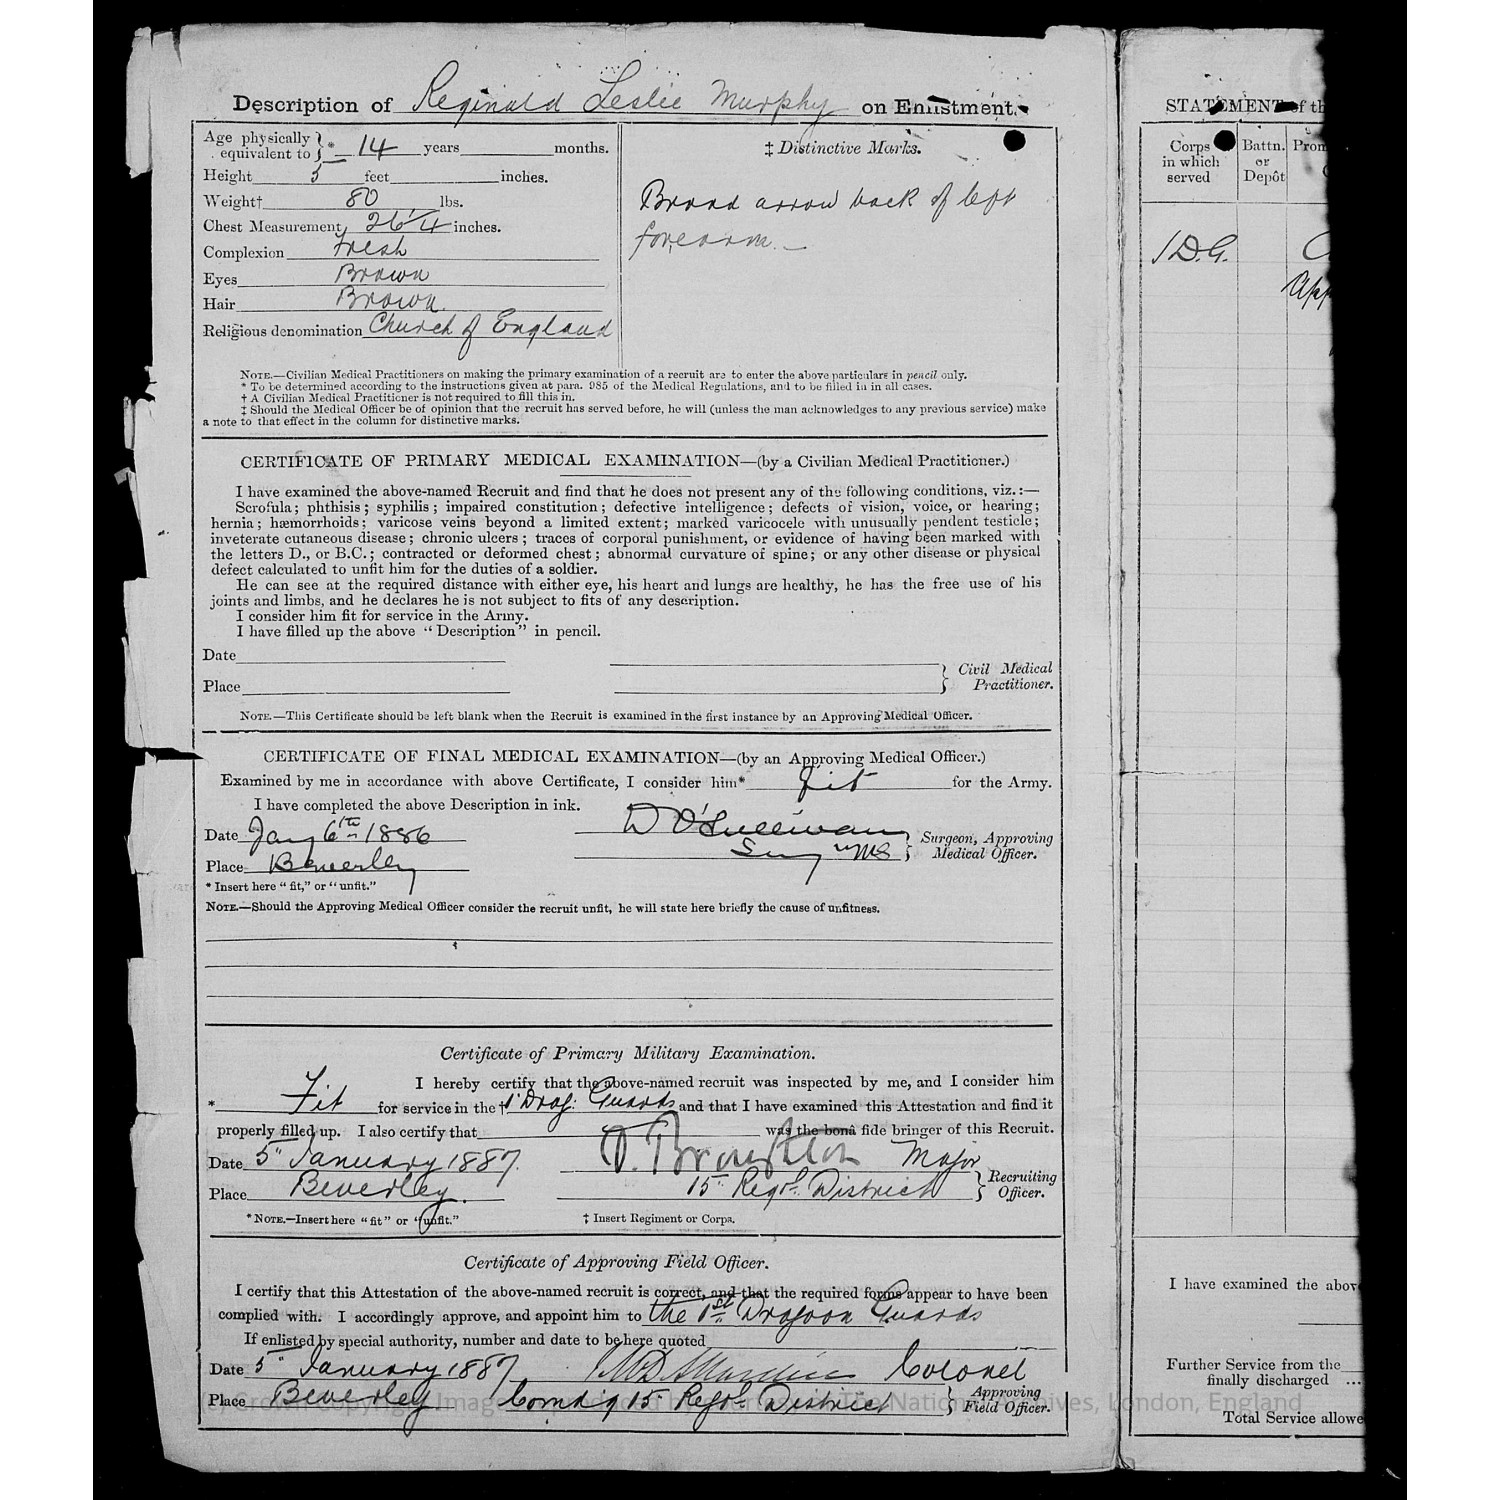 Description of Reginald Leslie Murphy on Enlistment.
Age physically equivalent to * 14 years months.
Height 5 feet inches.
Weight† 80 lbs.
Chest Measurement 26 1/4 inches.
Complexion Fresh
Eyes Brown
Hair Brown.
Religious denomination Church of England
‡ Distinctive Marks.
Broad arrow back of left
forearm.
NOTE.—Civilian Medical Practitioners on making the primary examination of a recruit are to enter the above particulars in pencil only.
* To be determined according to the instructions given at para. 985 of the Medical Regulations, and to be filled in in all cases.
† A Civilian Medical Practitioner is not required to fill this in.
‡ Should the Medical Officer be of opinion that the recruit has served before, he will (unless the man acknowledges to any previous service) make
a note to that effect in the column for distinctive marks.
CERTIFICATE OF PRIMARY MEDICAL EXAMINATION—(by a Civilian Medical Practitioner.)
I have examined the above-named Recruit and find that he does not present any of the following conditions, viz.:—
Scrofula; phthisis; syphilis; impaired constitution; defective intelligence; defects of vision, voice, or hearing;
hernia; hæmorrhoids; varicose veins beyond a limited extent; marked varicocele with unusually pendent testicle;
inveterate cutaneous disease; chronic ulcers; traces of corporal punishment, or evidence of having been marked with
the letters D., or B.C.; contracted or deformed chest; abnormal curvature of spine; or any other disease or physical
defect calculated to unfit him for the duties of a soldier.
He can see at the required distance with either eye, his heart and lungs are healthy, he has the free use of his
joints and limbs, and he declares he is not subject to fits of any description.
I consider him fit for service in the Army.
I have filled up the above "Description" in pencil.
Date
Place
Civil Medical
Practitioner.
NOTE.—This Certificate should be left blank when the Recruit is examined in the first instance by an Approving Medical Officer.
CERTIFICATE OF FINAL MEDICAL EXAMINATION—(by an Approving Medical Officer.)
Examined by me in accordance with above Certificate, I consider him* fit for the Army.
I have completed the above Description in ink.
Date Jany 6th 1886 D O'Sullivan Surgeon, Approving
Place Beverley Surg MS Medical Officer.
* Insert here "fit," or "unfit."
NOTE.—Should the Approving Medical Officer consider the recruit unfit, he will state here briefly the cause of unfitness.
Certificate of Primary Military Examination.
I hereby certify that the above-named recruit was inspected by me, and I consider him
* Fit for service in the † 1 Drag: Guards and that I have examined this Attestation and find it
properly filled up. I also certify that was the bonâ fide bringer of this Recruit.
Date 5" January 1887. Broughton Major
Place Beverley. 15 Regtl District Recruiting Officer.
* NOTE.—Insert here "fit" or "unfit." ‡ Insert Regiment or Corps.
Certificate of Approving Field Officer.
I certify that this Attestation of the above-named recruit is correct, and that the required forms appear to have been
complied with. I accordingly approve, and appoint him to the 1st Dragoon Guards
If enlisted by special authority, number and date to be here quoted
Date 5" January 1887 Colonel
Place Beverley Comdg 15 Regtl District Approving Field Officer.
STATEMENT of th
Corps in which served
Battn. or Depôt
Prom
1 D.G.
App
I have examined the abov
Further Service from the
finally discharged ...
Total Service allowe